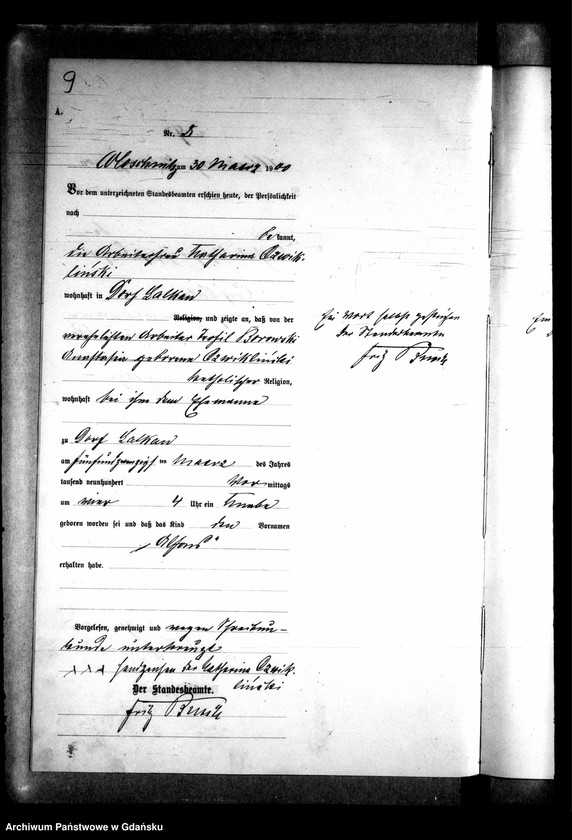 9
A.
Nr. 5
am 30 Maerz 1900
Vor dem unterzeichneten Standesbeamten erschien heute, der Persönlichkeit
nach
be kannt,
die Arbeiterfrau Katharina Czwik-
liński
wohnhaft in Dorf Lalkau
Religion, und zeigte an, daß von der
verehelichten Arbeiter Teofil Borowski
Anastasia geborene Czwikliński
katholischer Religion,
wohnhaft bei ihrem Ehemanne
zu Dorf Lalkau
am fünfundzwanzigst en Maerz des Jahres
tausend neunhundert Vor mittags
um vier 4 Uhr ein Knabe
geboren worden sei und daß das Kind den Vornamen
„Alfons“
erhalten habe.
Vorgelesen, genehmigt und wegen Schreibun-
kunde unterkreuzt
+++ Handzeichen der Catharina Czwik-
liński
Der Standesbeamte.
Fritz
Ein Wort gestrichen
Der Standesbeamte
Fritz
Archiwum Państwowe w Gdańsku